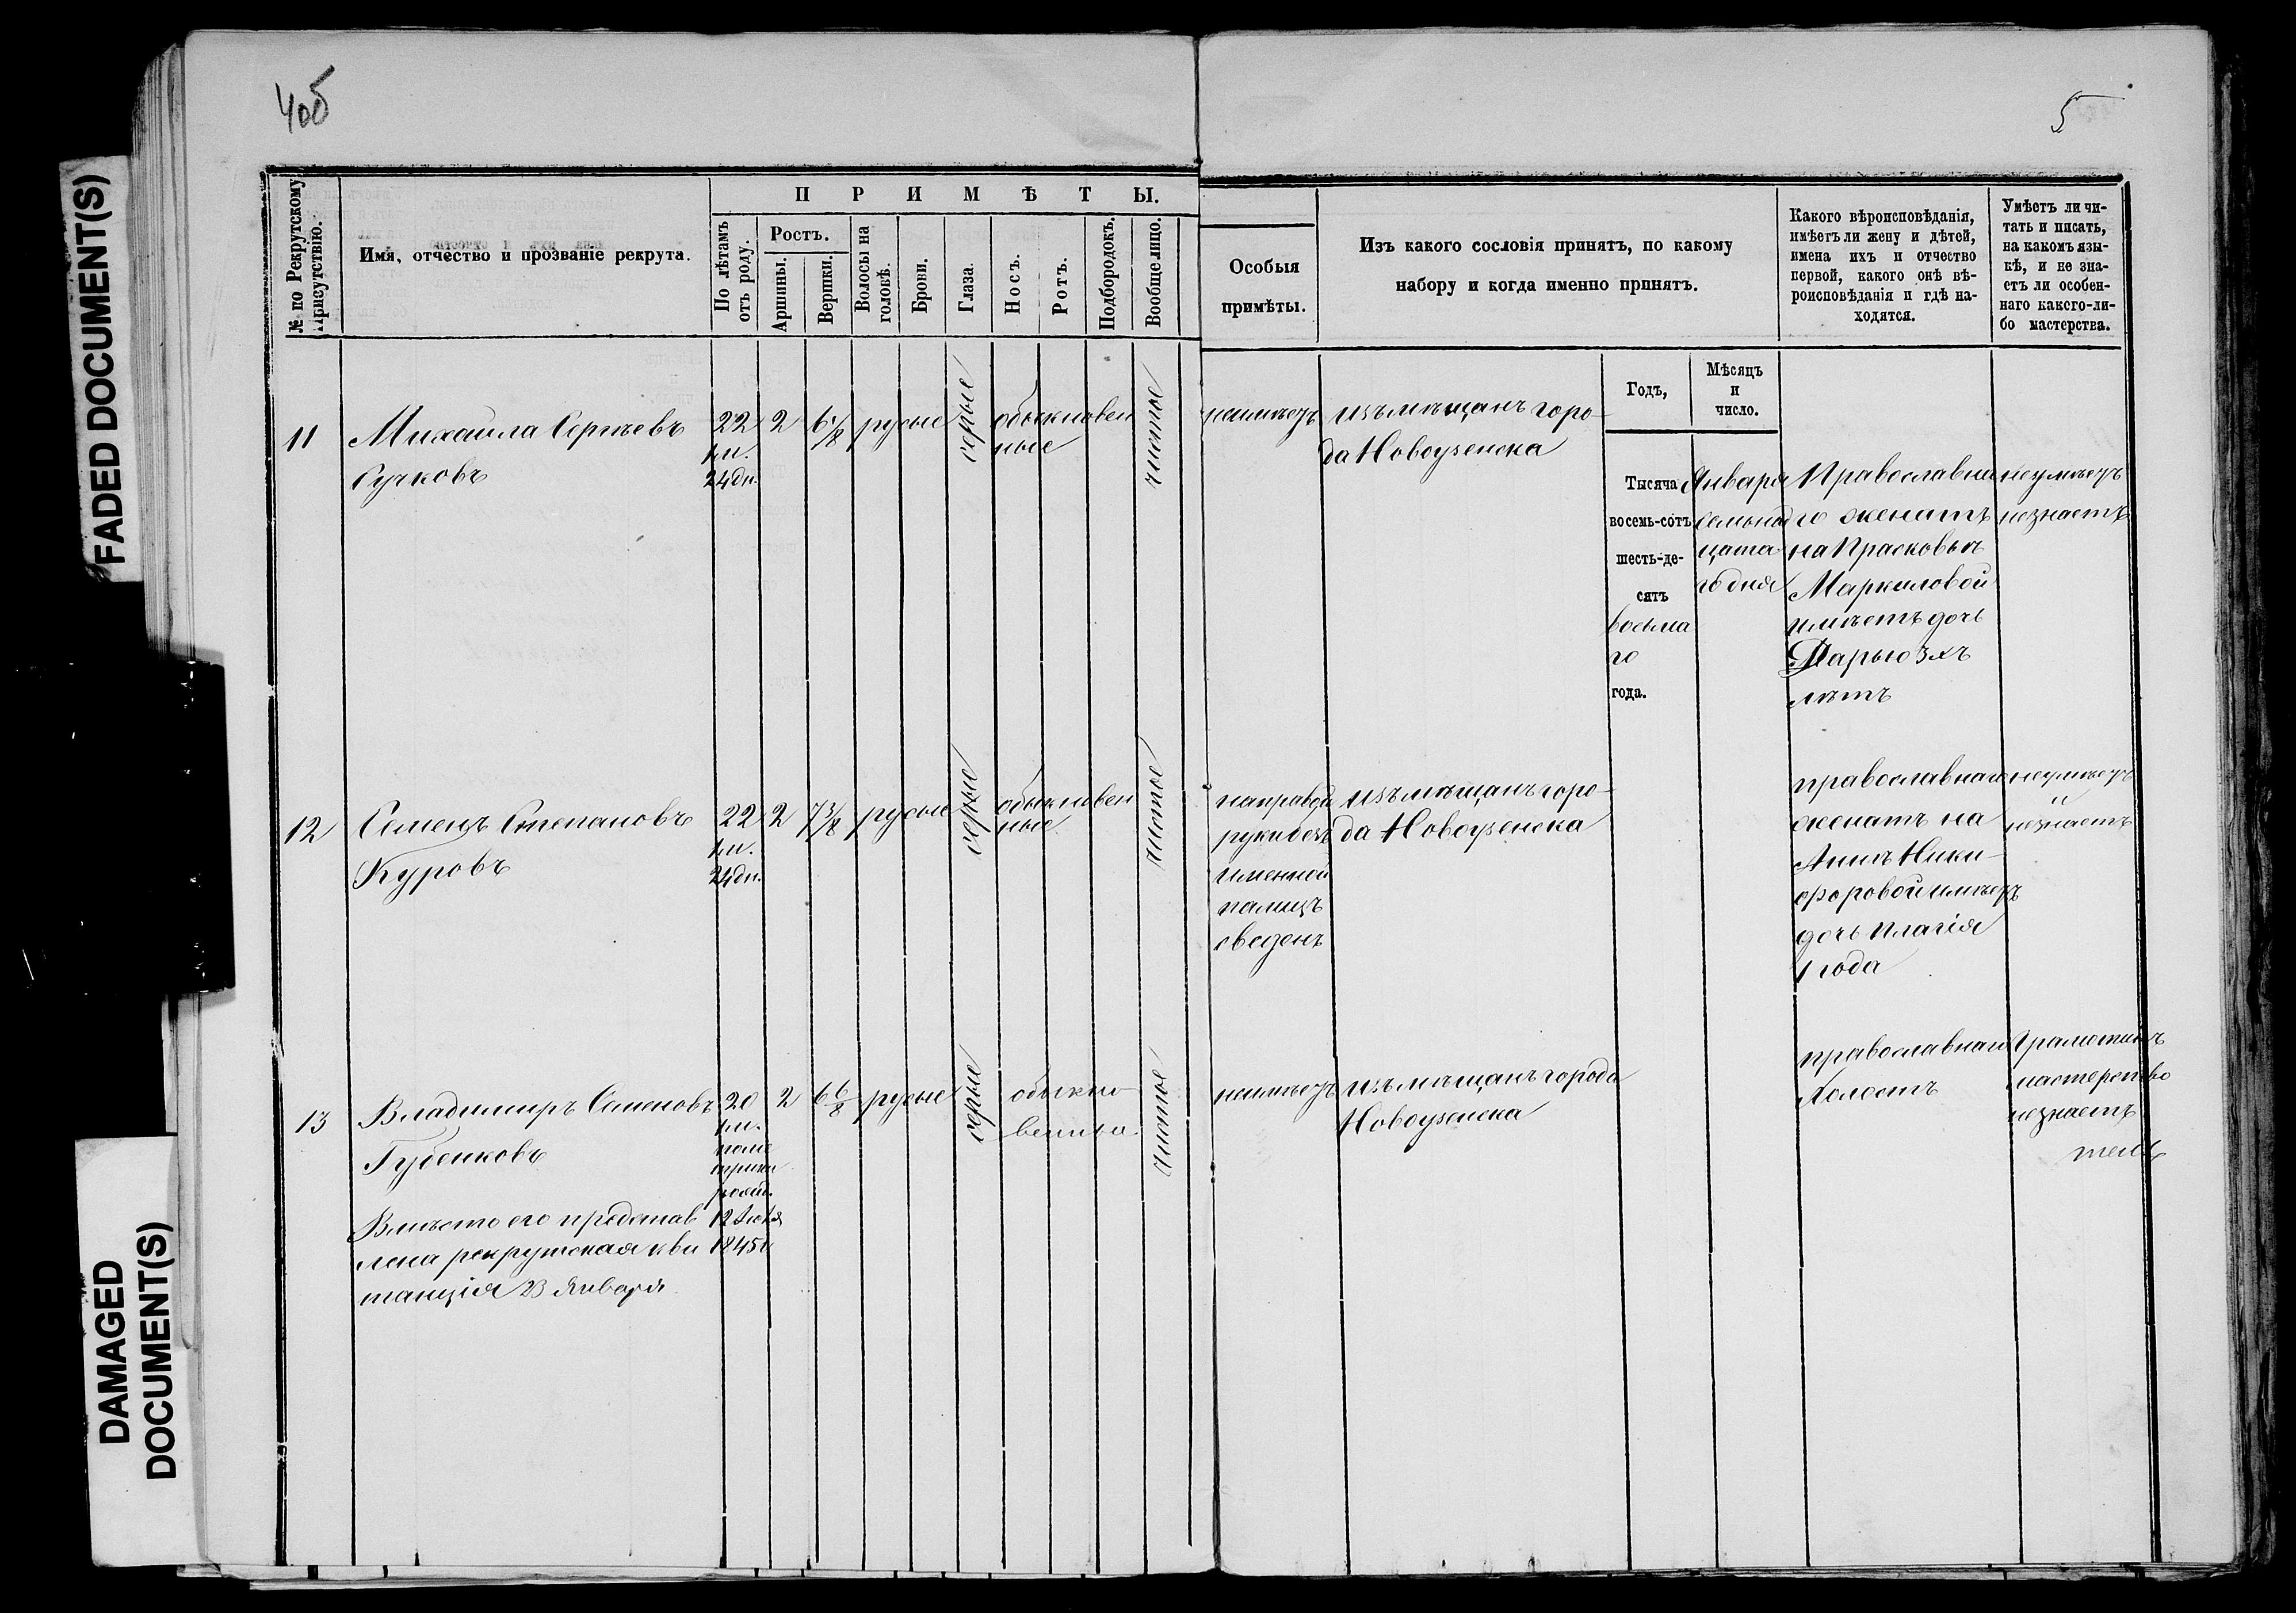 4об
5
FADED DOCUMENT(S)
DAMAGED
DOCUMENT(S)
№ по Рекрутскому
Присутствію.
Имя, отчество и прозваніе рекрута.
ПРИМѢТЫ.
По лѣтамъ
отъ роду.
Ростъ.
Аршины.
Вершки.
Волосы на
головѣ.
Брови.
Глаза.
Носъ.
Ротъ.
Подбородокъ.
Вообще лицо.
Особыя
примѣты.
Изъ какого сословія принятъ, по какому
набору и когда именно принятъ.
Годъ,
Мѣсяцъ
и
число.
Какого вѣроисповѣданія,
имѣетъ ли жену и дѣтей,
имена ихъ и отчество
первой, какого онѣ вѣ-
роисповѣданія и гдѣ на-
ходятся.
Умѣетъ ли чи-
тать и писать,
на какомъ язы-
кѣ, и не зна-
етъ ли особен-
наго какого-ли-
бо мастерства.
11
Михаила Сергѣевъ
Сучковъ
22
1 м.
24 дн.
2
6 1/8
русые
серые
обыкновен
ные
чистое
неимѣетъ
изъ мѣщанъ горо-
да Новоузенска
Тысяча
восемь-сотъ
шесть-де-
сятъ
восьма
го
года.
Января
семьнад
цата
го дня
Православна
го женитъ
на Прасковьѣ
Маркиловой
имѣетъ дочь
Дарью 3хъ
лѣтъ
неумѣетъ
незнаетъ
12
Семенъ Степановъ
Куровъ
22
1 м.
24 дн.
2
7 3/8
русые
серые
обыкновен
ные
чистое
направой
руки безъ
именной
палецъ
сведенъ
изъ мѣщанъ горо-
да Новоузенска
православнаго
женатъ на
Аннѣ Ники-
форовой имѣетъ
дочь Плагія
1 года
неумѣетъ
и
незнаетъ
13
Владимиръ Семеновъ
Губенковъ
Вмѣсто его представ
лена рекрутская кви
танція 23 Января
20
1 м.
12 Июля
1845 г
2
6 6/8
русые
серые
обыкно-
венны
чистое
неимѣетъ
изъ мѣщанъ города
Новоузенска
православнаго
Холостъ
Грамотный
мастерство
незнаетъ